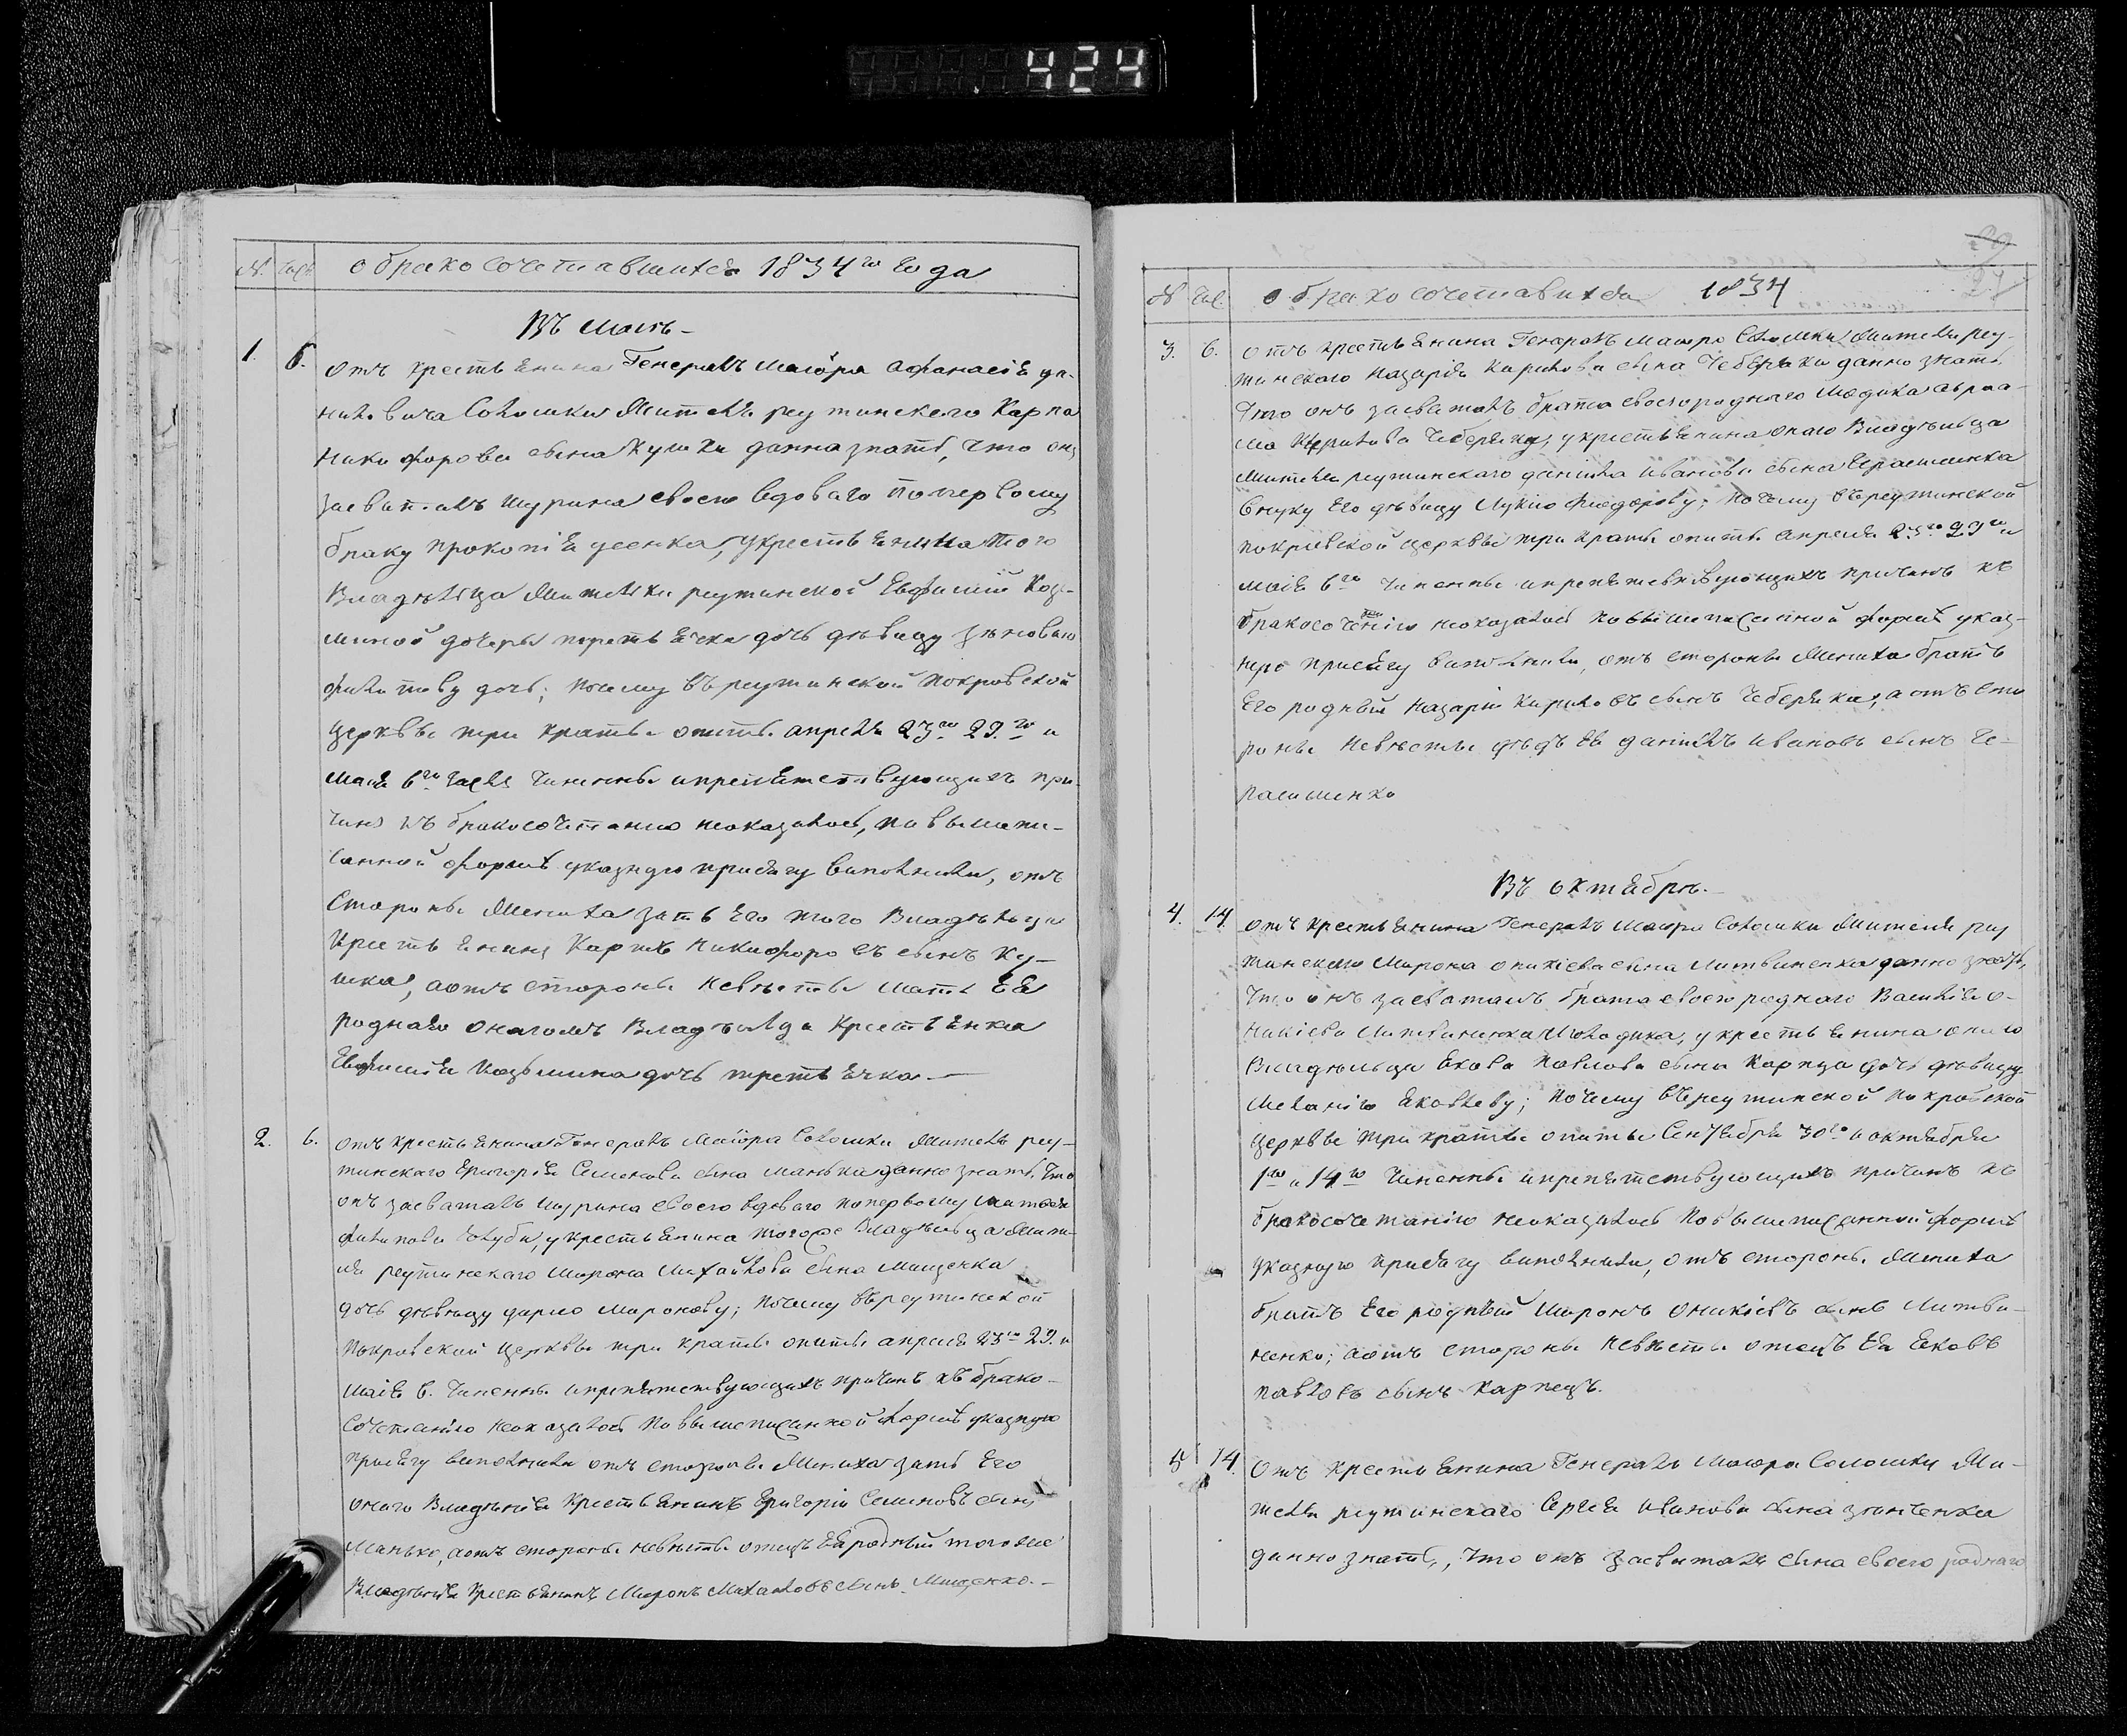 424
№ Числ о бракосочетавшихся 1834го года
Въ маиъ
1. 6. отъ крестьянина Генералъ маіора Афанасія да-
ниловича Соломки жителя реутинского Карпа
Никифорова сына Кушки данна знать, что онъ
засваталъ шурина своего вдоваго по первому
браку прокопія усенка, у крестьянина того
Владѣльца жителки реутинской Евфиміи Коз-
миной дочеры третьячки дочь дѣвицу зѣновію
филипову дочь; почему въ реутинской покровской
церквѣ три краты опиты апреля 23го 29.го и
маія 6го числъ чиненны и препятствующихъ при-
чинъ къ бракосочетанію неоказалось, по вышепи-
санной формѣ указную присягу виполнили, отъ
стороны жениха зять Его того Владѣльца
крестьянинъ Карпъ Никифоровъ сынъ Ку-
шка, аотъ стороны невѣсты мать Ея
роднаго онагожъ Владѣльца крестьянка
Евфимія Козьмина дочь третьячка.—
2. 6. отъ крестьянина Генералъ маіора Соломки жителя реу-
тинскаго Григорія Семенова сына манька данно знать, что
онъ засваталъ шурина своего вдоваго по первому
филипова Голуба, у крестьянина тогоже Владѣльца жите-
ля реутинскаго мирона михайлова сына мищенка
дочь дѣвицу дарію миронову; почему въ реутинской
покровской церквѣ три краты опиты апреля 23го 29. и
маія 6. чиненны и препятствующихъ причинъ къ брако-
сочетанію неоказалось по вышеписанной формѣ указную
присягу виполнили отъ стороны жениха зять Его
онаго Владѣнія крестьянинъ Григорій Семеновъ сынъ
манько, аотъ стороны невѣсты отецъ Ея родный тогоже
Владѣнія крестьянинъ миронъ михайловъ сынъ мищенко.—
№ Чис. о бракосочетавшихся 1834
3. 6. отъ крестьянина Генералъ маіора Соломки жителя реу-
тинскаго назарія Кирилова сына Чеберяки данно знать,
что онъ засваталъ брата своего роднаго авраа-
ма Кирилова Чеберяку, у крестьянина онаго Владѣльца
жителя реутинскаго даніила Иванова сына Герасименка
внуку Его дѣвицу Лукію Фиодорову; почему въ реутинской
покровской церквѣ три краты опиты апреля 23го 29го и
маія 6го чиненны и препятствующихъ причинъ къ
бракосочетанію неоказалось по вышеписанной формѣ указ-
ную присягу виполнили, отъ стороны жениха братъ
Его родный назарій Кириловъ сынъ Чеберяка, а отъ сто
роны невѣсты дѣдъ Ея даніилъ Ивановъ сынъ Ге-
расименко
Въ октябрѣ.—
4. 14. отъ крестьянина Генералъ маіора Соломки жителя реу
тинскаго мирона оникіева сына литвиненка данно знать,
что онъ засваталъ брата своего роднаго Василія о-
никіева литвиненка молодика, у крестьянина онаго
Владѣльца Якова Павлова сына Карпца дочь дѣвицу
меланію Яковлеву; почему въ реутинской покровской
церквѣ три краты опиты Сентября 30го и октября
1го и 14го чиненны и препятствующихъ причинъ къ
бракосочетанію неоказалось по вышеписанной формѣ
указную присягу виполнили, отъ стороны жениха
братъ Его родный миронъ оникіевъ сынъ литви-
ненко; аотъ стороны невѣсты отецъ Ея Яковъ
павловъ сынъ Карпецъ.
5 14. отъ крестьянина Генералъ маіора Соломки жи-
теля реутинскаго Сергія Иванова сына зѣнченка
данно знать, что онъ засваталъ сына своего роднаго